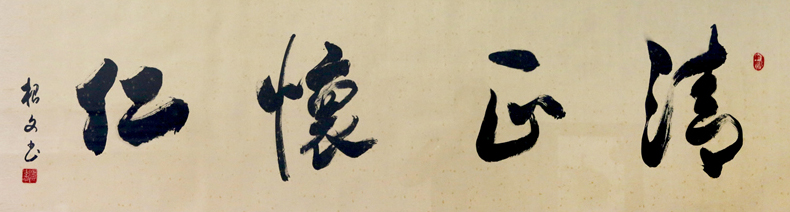 清正懷仁
根文书